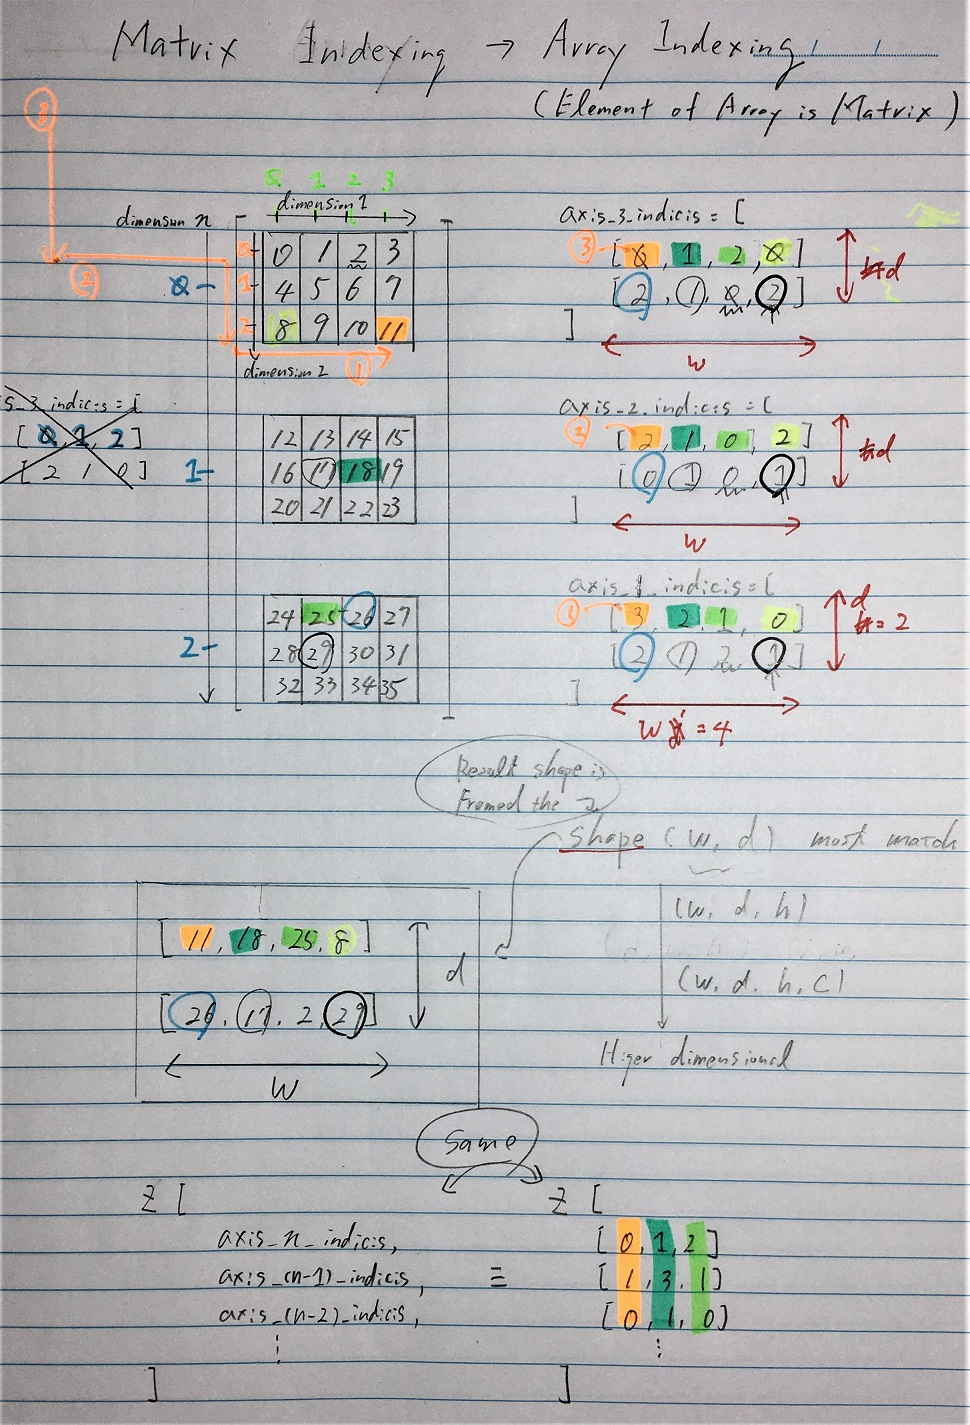 Matrix Indexing → Array Indexing
(Element of Array is Matrix)
③
0 1 2 3
dimension 1
dimension n
0 0 1 2 3
0 1 4 5 6 7
2 8 9 10 11
②
dimension 2 ①
axis_3_indicis = [
③ [0, 1, 2, 0]
[2, 1, 0, 2]
]
d
w
s_3_indicis = [
[0, 1, 2]
[2 1 0]
12 13 14 15
1 16 17 18 19
20 21 22 23
axis_2_indicis = [
② [2, 1, 0, 2]
[0, 1, 0, 1]
]
d
w
24 25 26 27
2 28 29 30 31
32 33 34 35
axis_1_indicis = [
① [3, 2, 1, 0]
[2, 1, 2, 1]
]
d
= 2
w = 4
Result shape is
Fromed the
shape (w, d) must match
(w, d, h)
(w, d, h, c)
Higer dimensional
[11, 18, 25, 8]
[26, 17, 2, 29]
d
w
Same
Z [
axis_n_indicis,
axis_(n-1)_indicis,
axis_(n-2)_indicis,
⋮
]
≡
Z [
[0, 1, 2]
[1, 3, 1]
[0, 1, 0]
⋮
]